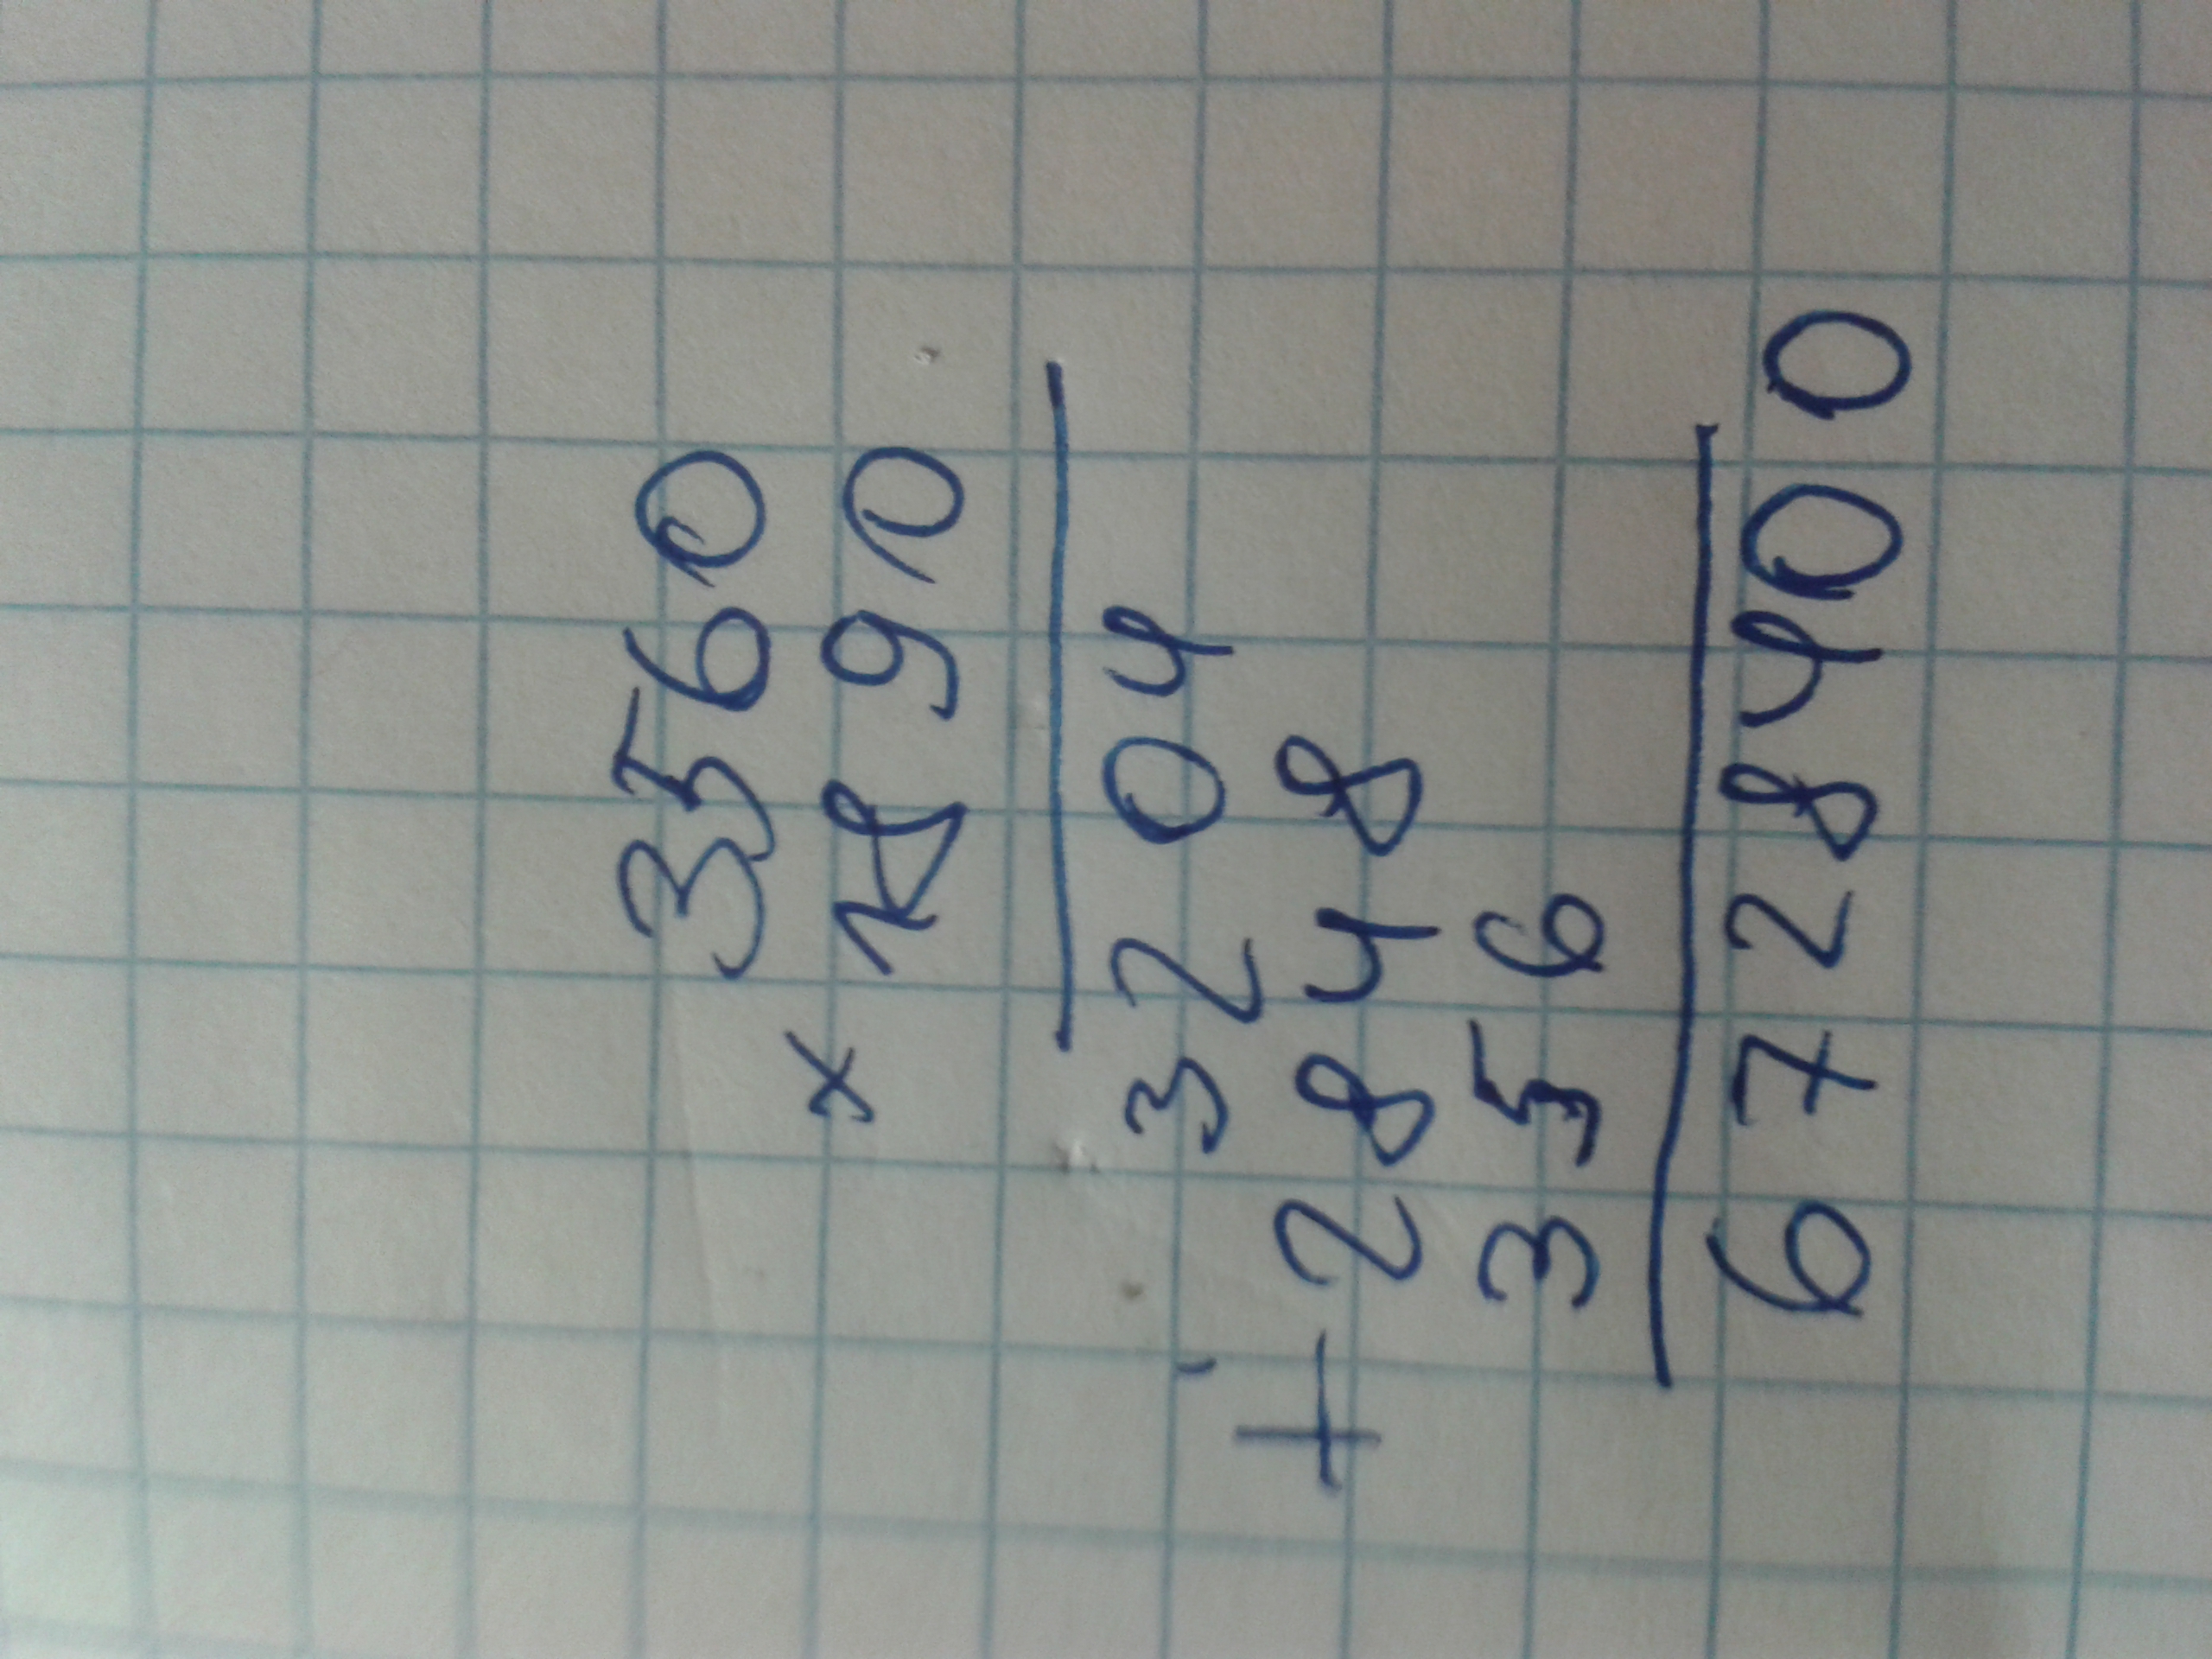 3560
x 1890
3204
+ 2848
356
6728400